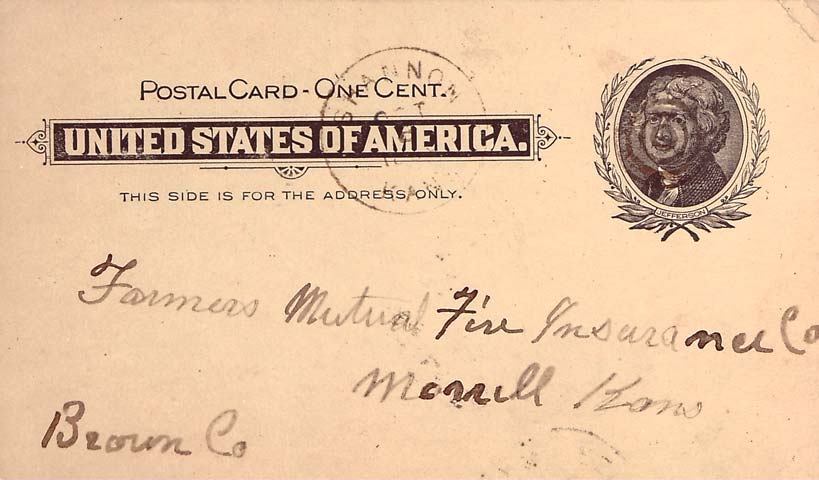 POSTAL CARD - ONE CENT.
SHANNON
OCT
KAN
UNITED STATES OF AMERICA.
THIS SIDE IS FOR THE ADDRESS ONLY.
JEFFERSON
Farmers Mutual Fire Insurance Co
Morrill Kans
Brown Co